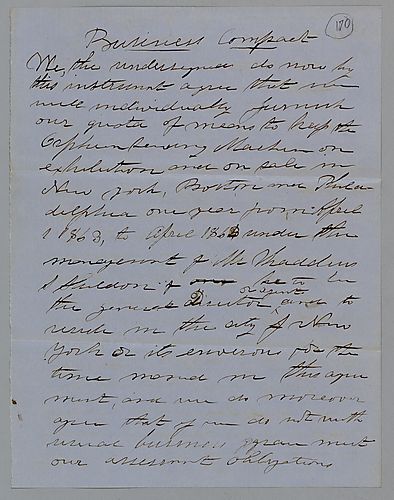 180
Business Compact
We, the undersigned do now by
this instrument agree that we
will individually furnish
our quota of means to keep the
Orphean Sewing Machine on
exhibition and on sale in
New York, Boston and Phila
delphia one year from April
1 1863, to April 1864 under the
management of Mr Thaddeus
S Sheldon he to be
or agent
the general Director and to
reside in the city of New
York or its environs for the
time named in this agree
ment, and we do moreover
agree that if we do not with
usual business meet
our assessment obligations